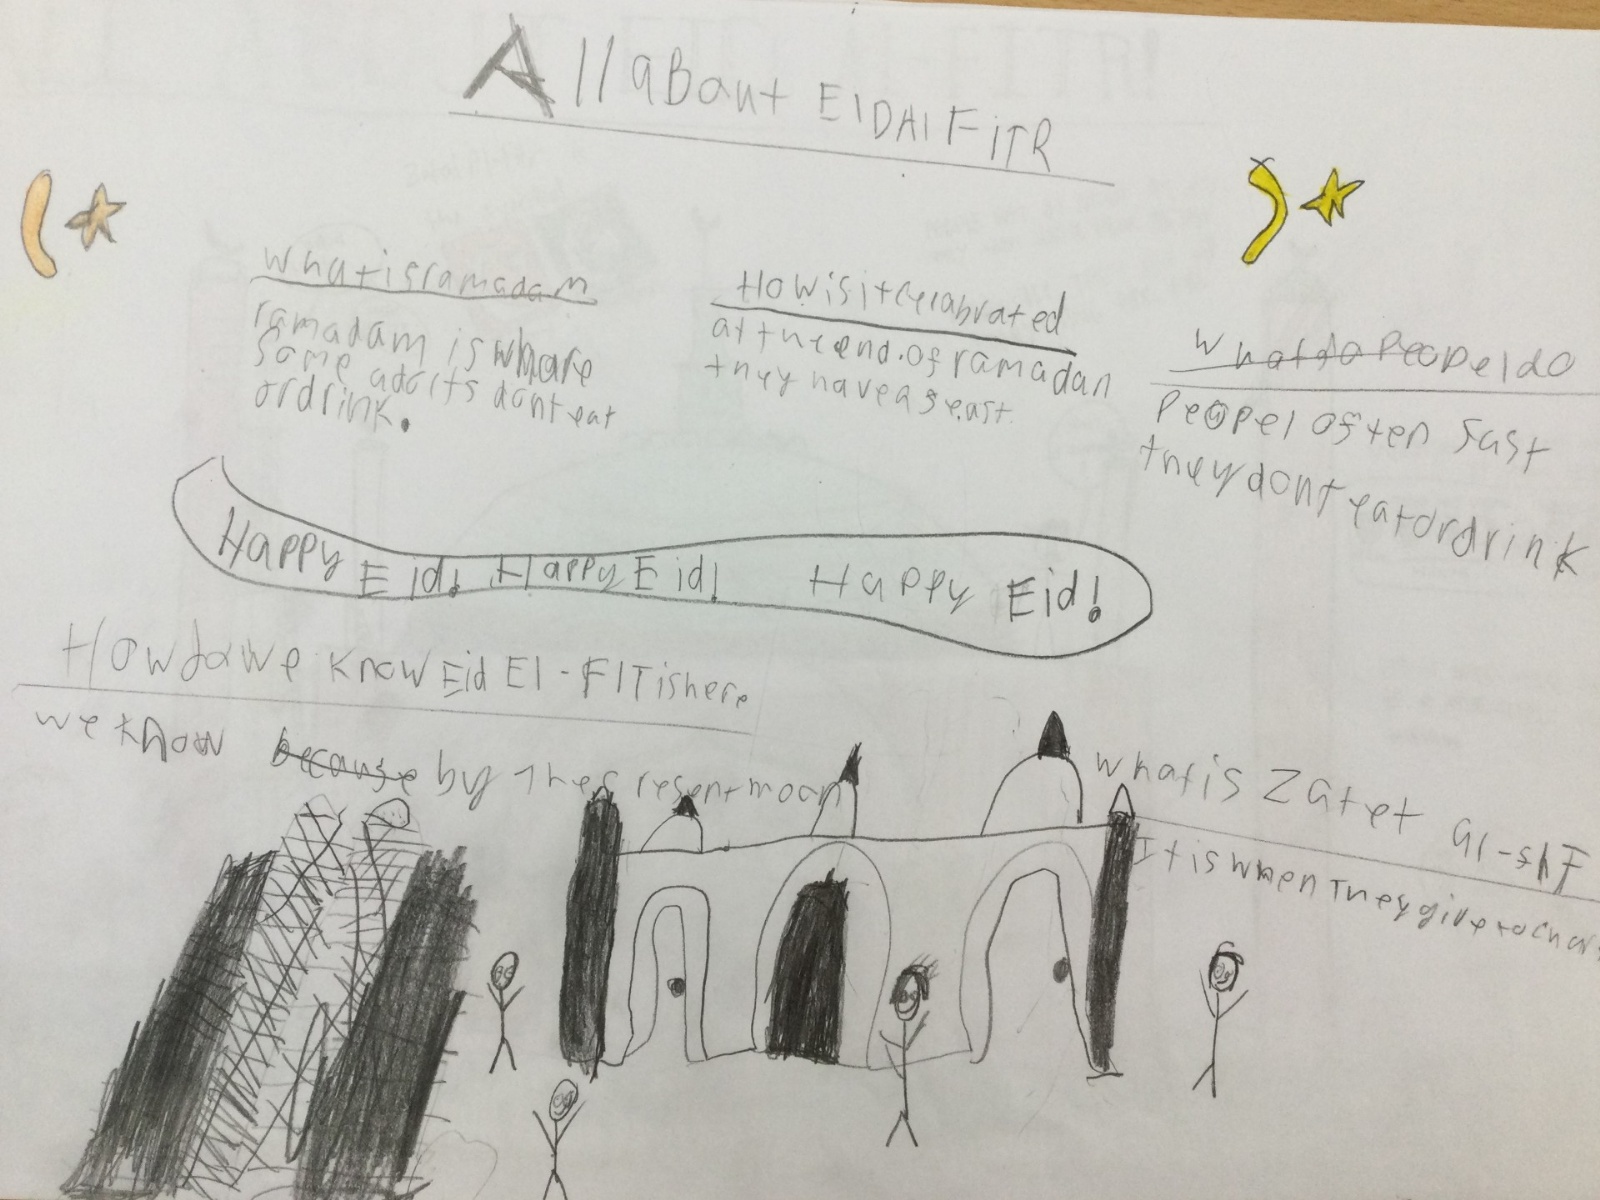 All aBout EIDAl FiTR
whatisramadam
ramadam is whare
some adolts dont eat
ordrink.
Howisitcelabrated
at the end. of ramadan
they have a feast.
what do Peopel do
Peopel often fast
they dont eat or drink
Happy Eid! Happy Eid! Happy Eid!
How do we know Eid El-FITishere
we know because by The cresent moon
what is Zatet al-shF
It is when They give to char